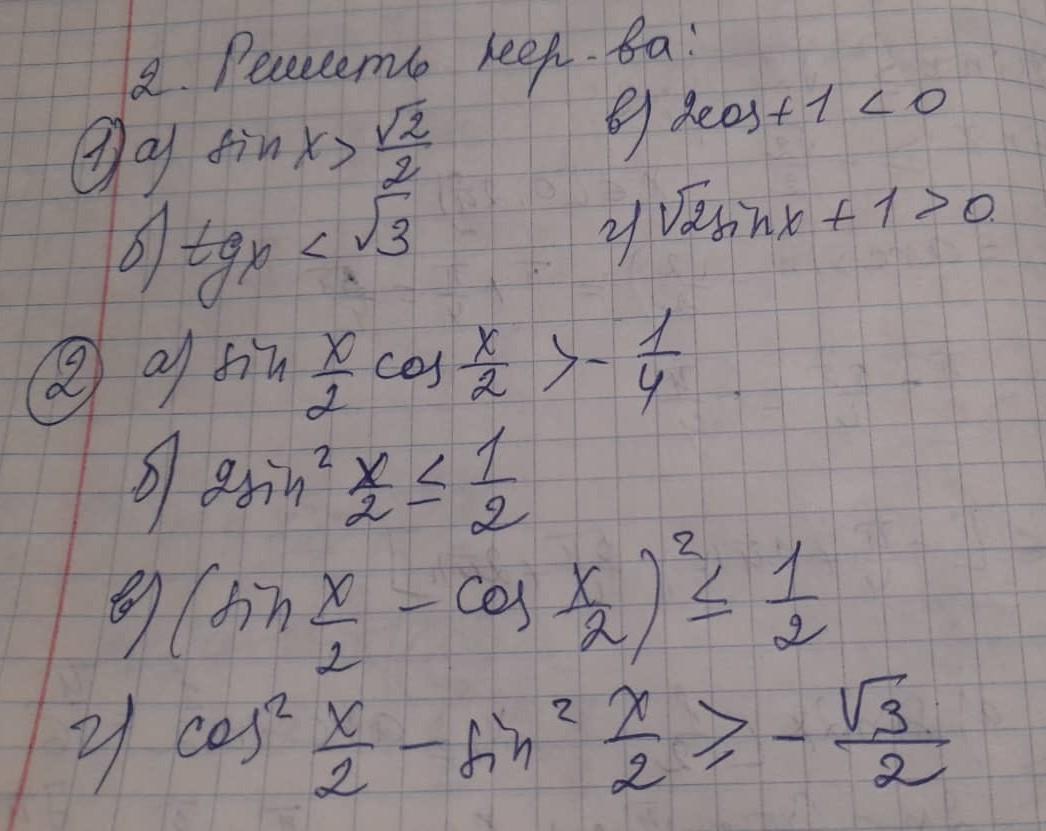 2. Решить нер-ва:
1) а) sin x > √2/2
в) 2cos + 1 < 0
б) tg x < √3
г) √2 sin x + 1 > 0
2) а) sin x/2 cos x/2 > - 1/4
б) 2sin² x/2 ≤ 1/2
в) (sin x/2 - cos x/2)² ≤ 1/2
г) cos² x/2 - sin² x/2 ≥ - √3/2